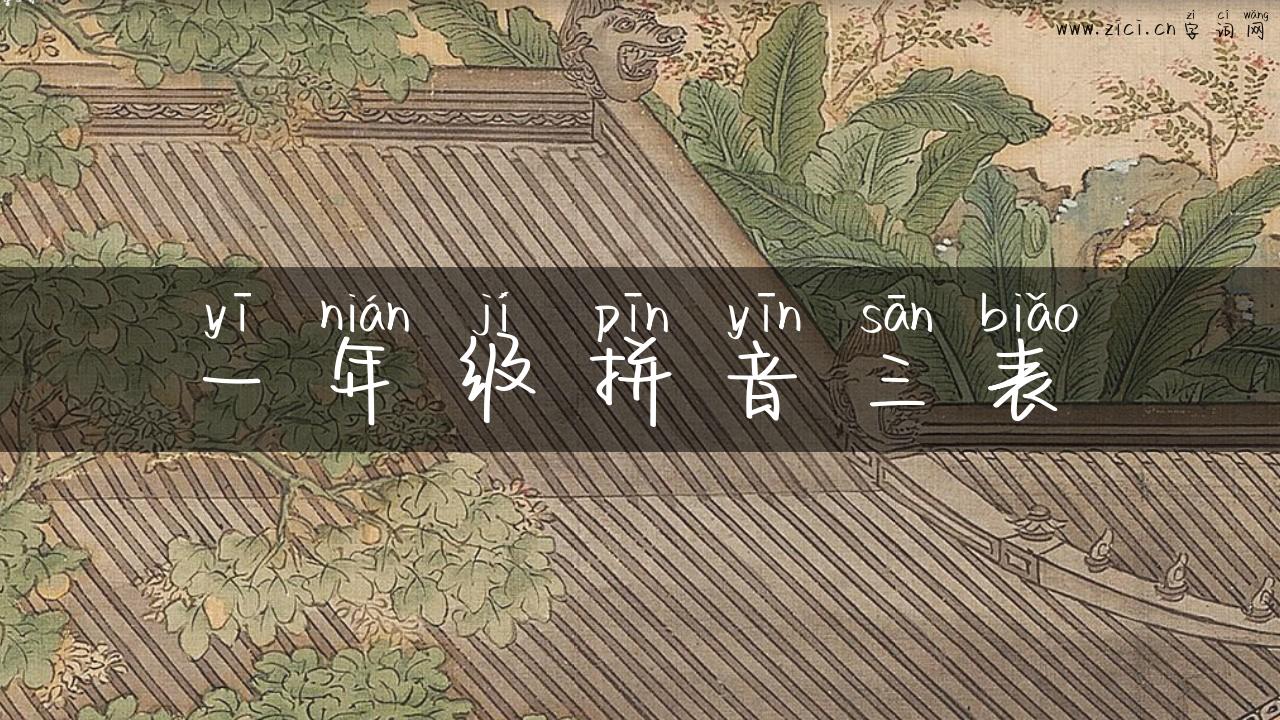 zì cí wǎng
www.zici.cn 字词网
yī nián jí pīn yīn sān biǎo
一年级拼音三表